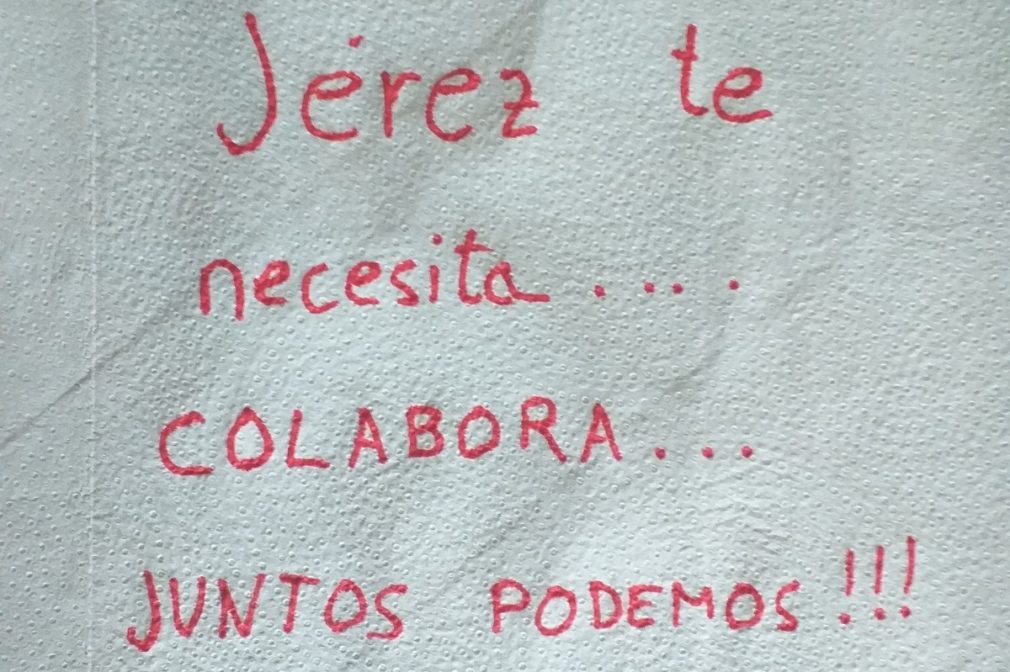 Jérez te
necesita....
COLABORA...
JUNTOS PODEMOS!!!